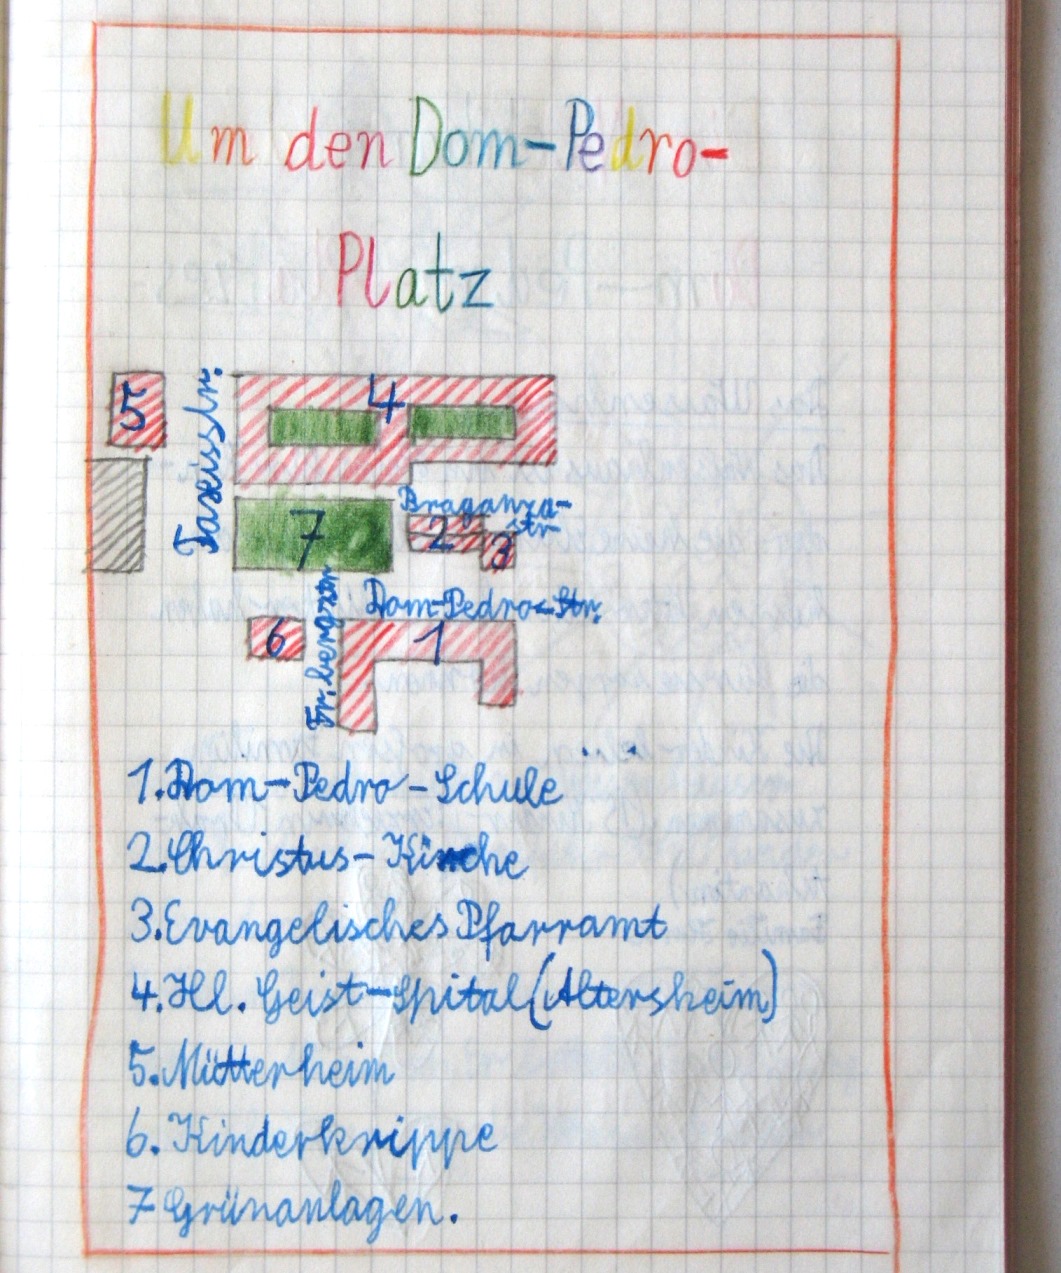 Um den Dom-Pedro-
Platz
5
Taxisstr.
4
7
Braganza-
str.
2
3
Dom-Pedro-Str.
6
Fr.bergstr
1
1. Dom-Pedro-Schule
2. Christus-Kirche
3. Evangelisches Pfarramt
4. Hl. Geist-Spital (Altersheim)
5. Mütterheim
6. Kinderkrippe
7 Grünanlagen.